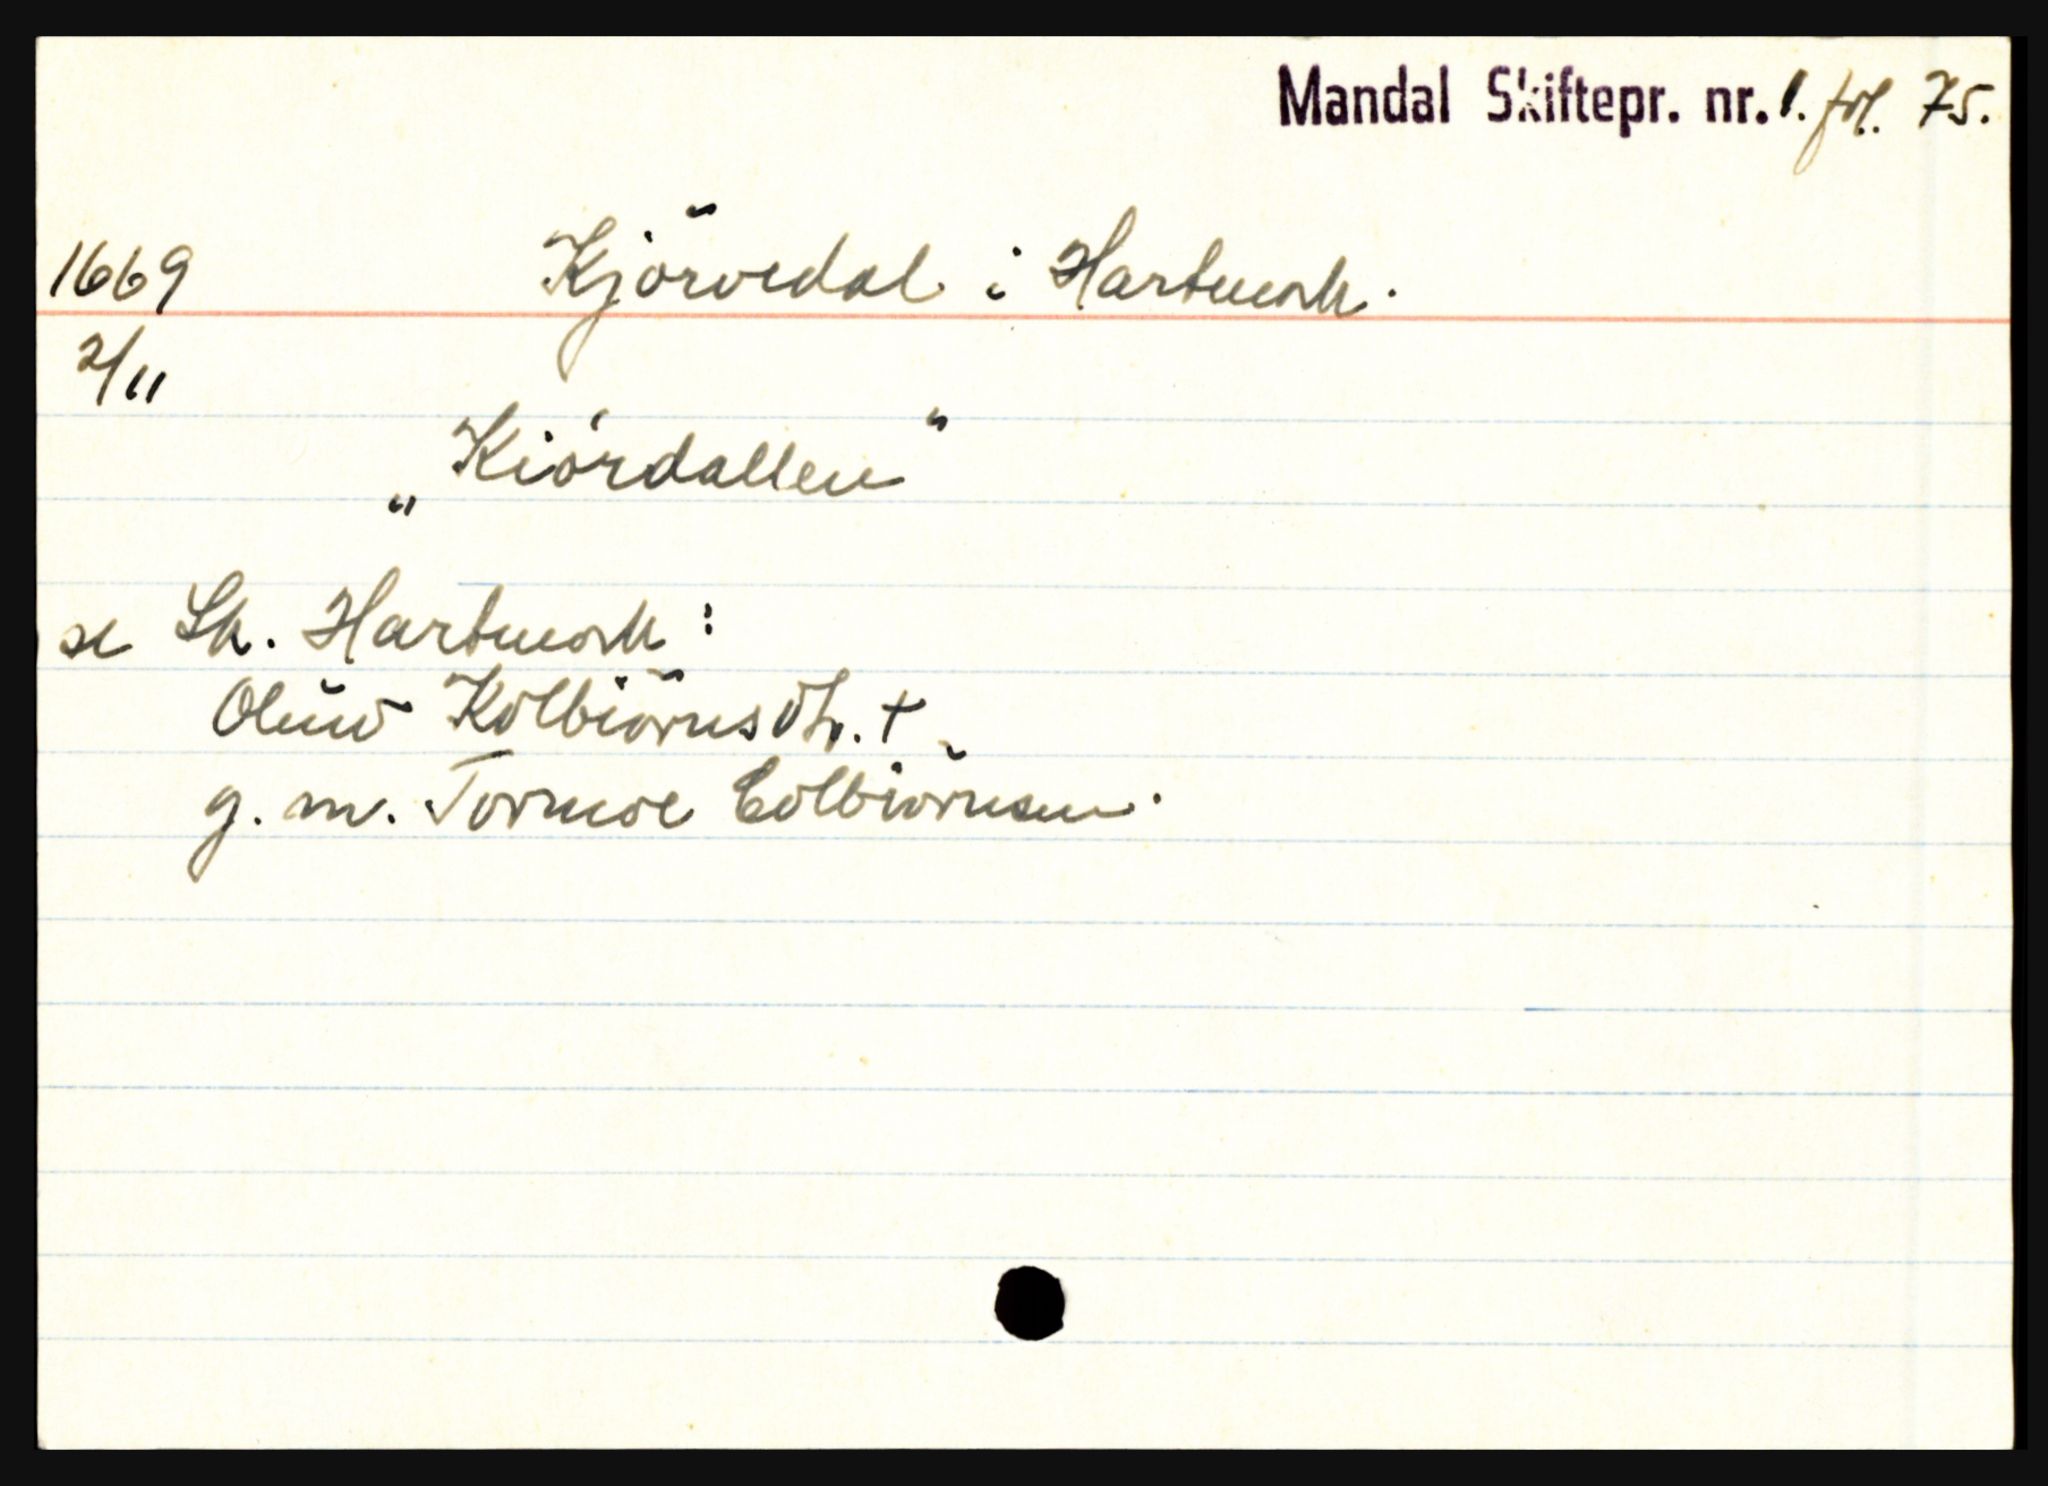 Mandal Skiftepr. nr. 1. fol. 75.
1669 Kjörvedal i Hartmark.
2/11
„Kiórdallen“
se Sk. Hartmark:
Oluw Kolbiörnsdtr. +
g. m. Tormoe Colbiörnsen.